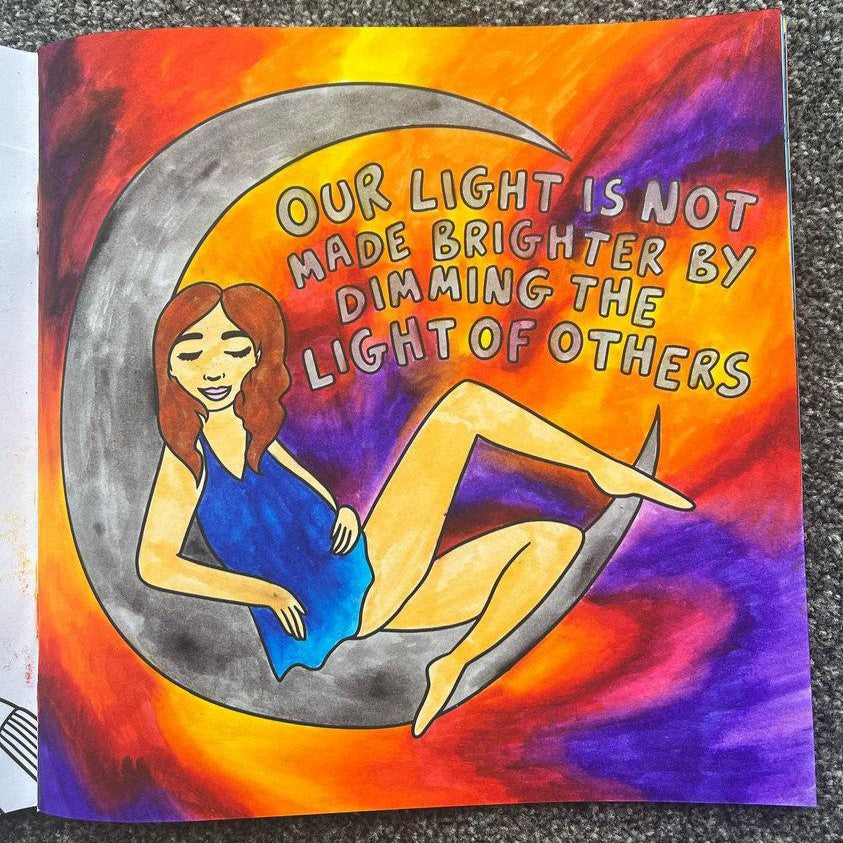 OUR LIGHT IS NOT
MADE BRIGHTER BY
DIMMING THE
LIGHT OF OTHERS